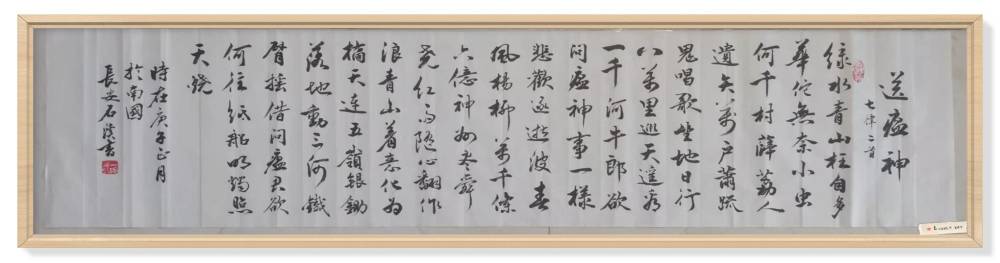 送瘟神
七律二首
绿水青山枉自多
華佗無奈小虫
何千村薜荔人
遺矢萬户蕭疏
鬼唱歌坐地日行
八萬里巡天遥看
一千河牛郎欲
问瘟神事一樣
悲歡逐逝波春
風楊柳萬千條
六億神州尽舜
尧红雨随心翻作
浪青山着意化为
橋天連五嶺银鋤
落地動三河鐵
臂摇借问瘟君欲
何往纸船明燭照
天燒
時在庚子正月
於南國
長安石书